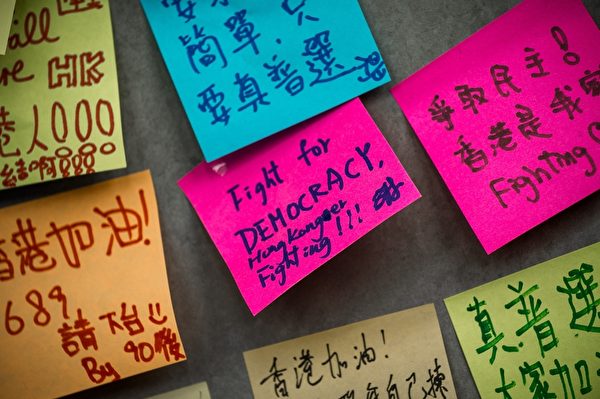 all
are HK
港人
結啊
簡單，只
要真普選
爭取民主！
香港是我家
Fighting
Fight for
DEMOCRACY,
Hongkonger
Fighting!!!
香港加油!
689
請下台
By 90後
香港加油！
自己揀
真普選
大家加